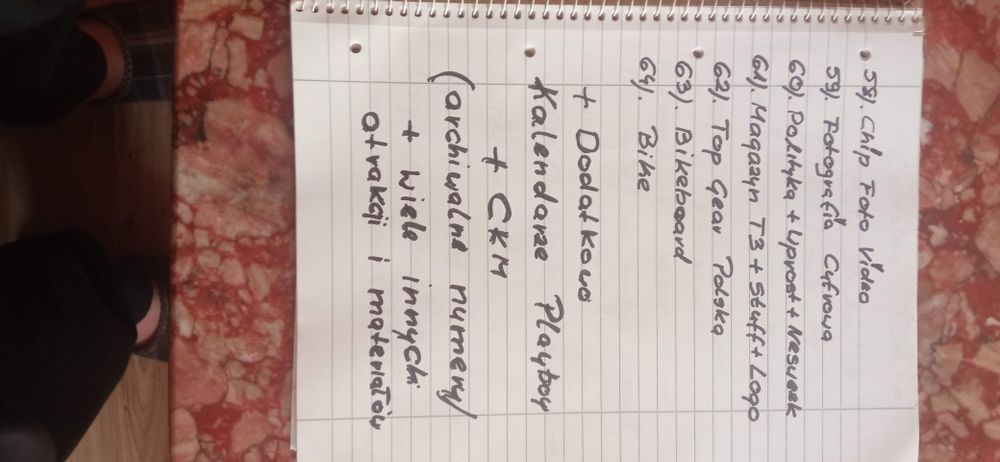 58). Chip Foto Video
59). Fotografia Cyfrowa
60). Polityka + Wprost + Newsweek
61). Magazyn T3 + Stuff + Logo
62). Top Gear Polska
63) Bikeboard
64). Bike
+ Dodatkowo
Kalendarze Playboy
+ CKM
(archiwalne numery)
+ wiele innych
atrakcji i materiałów